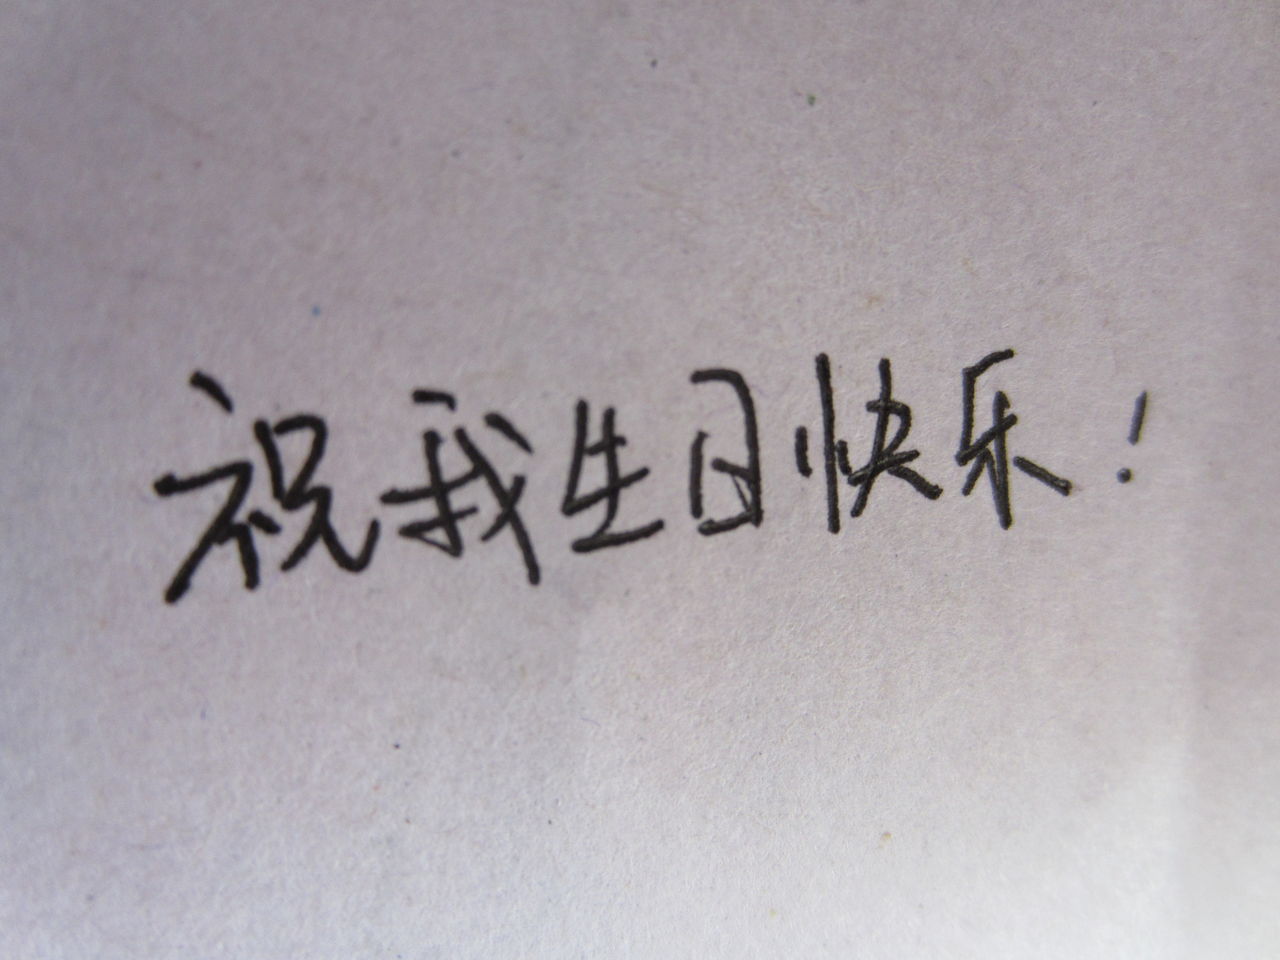 祝我生日快乐！